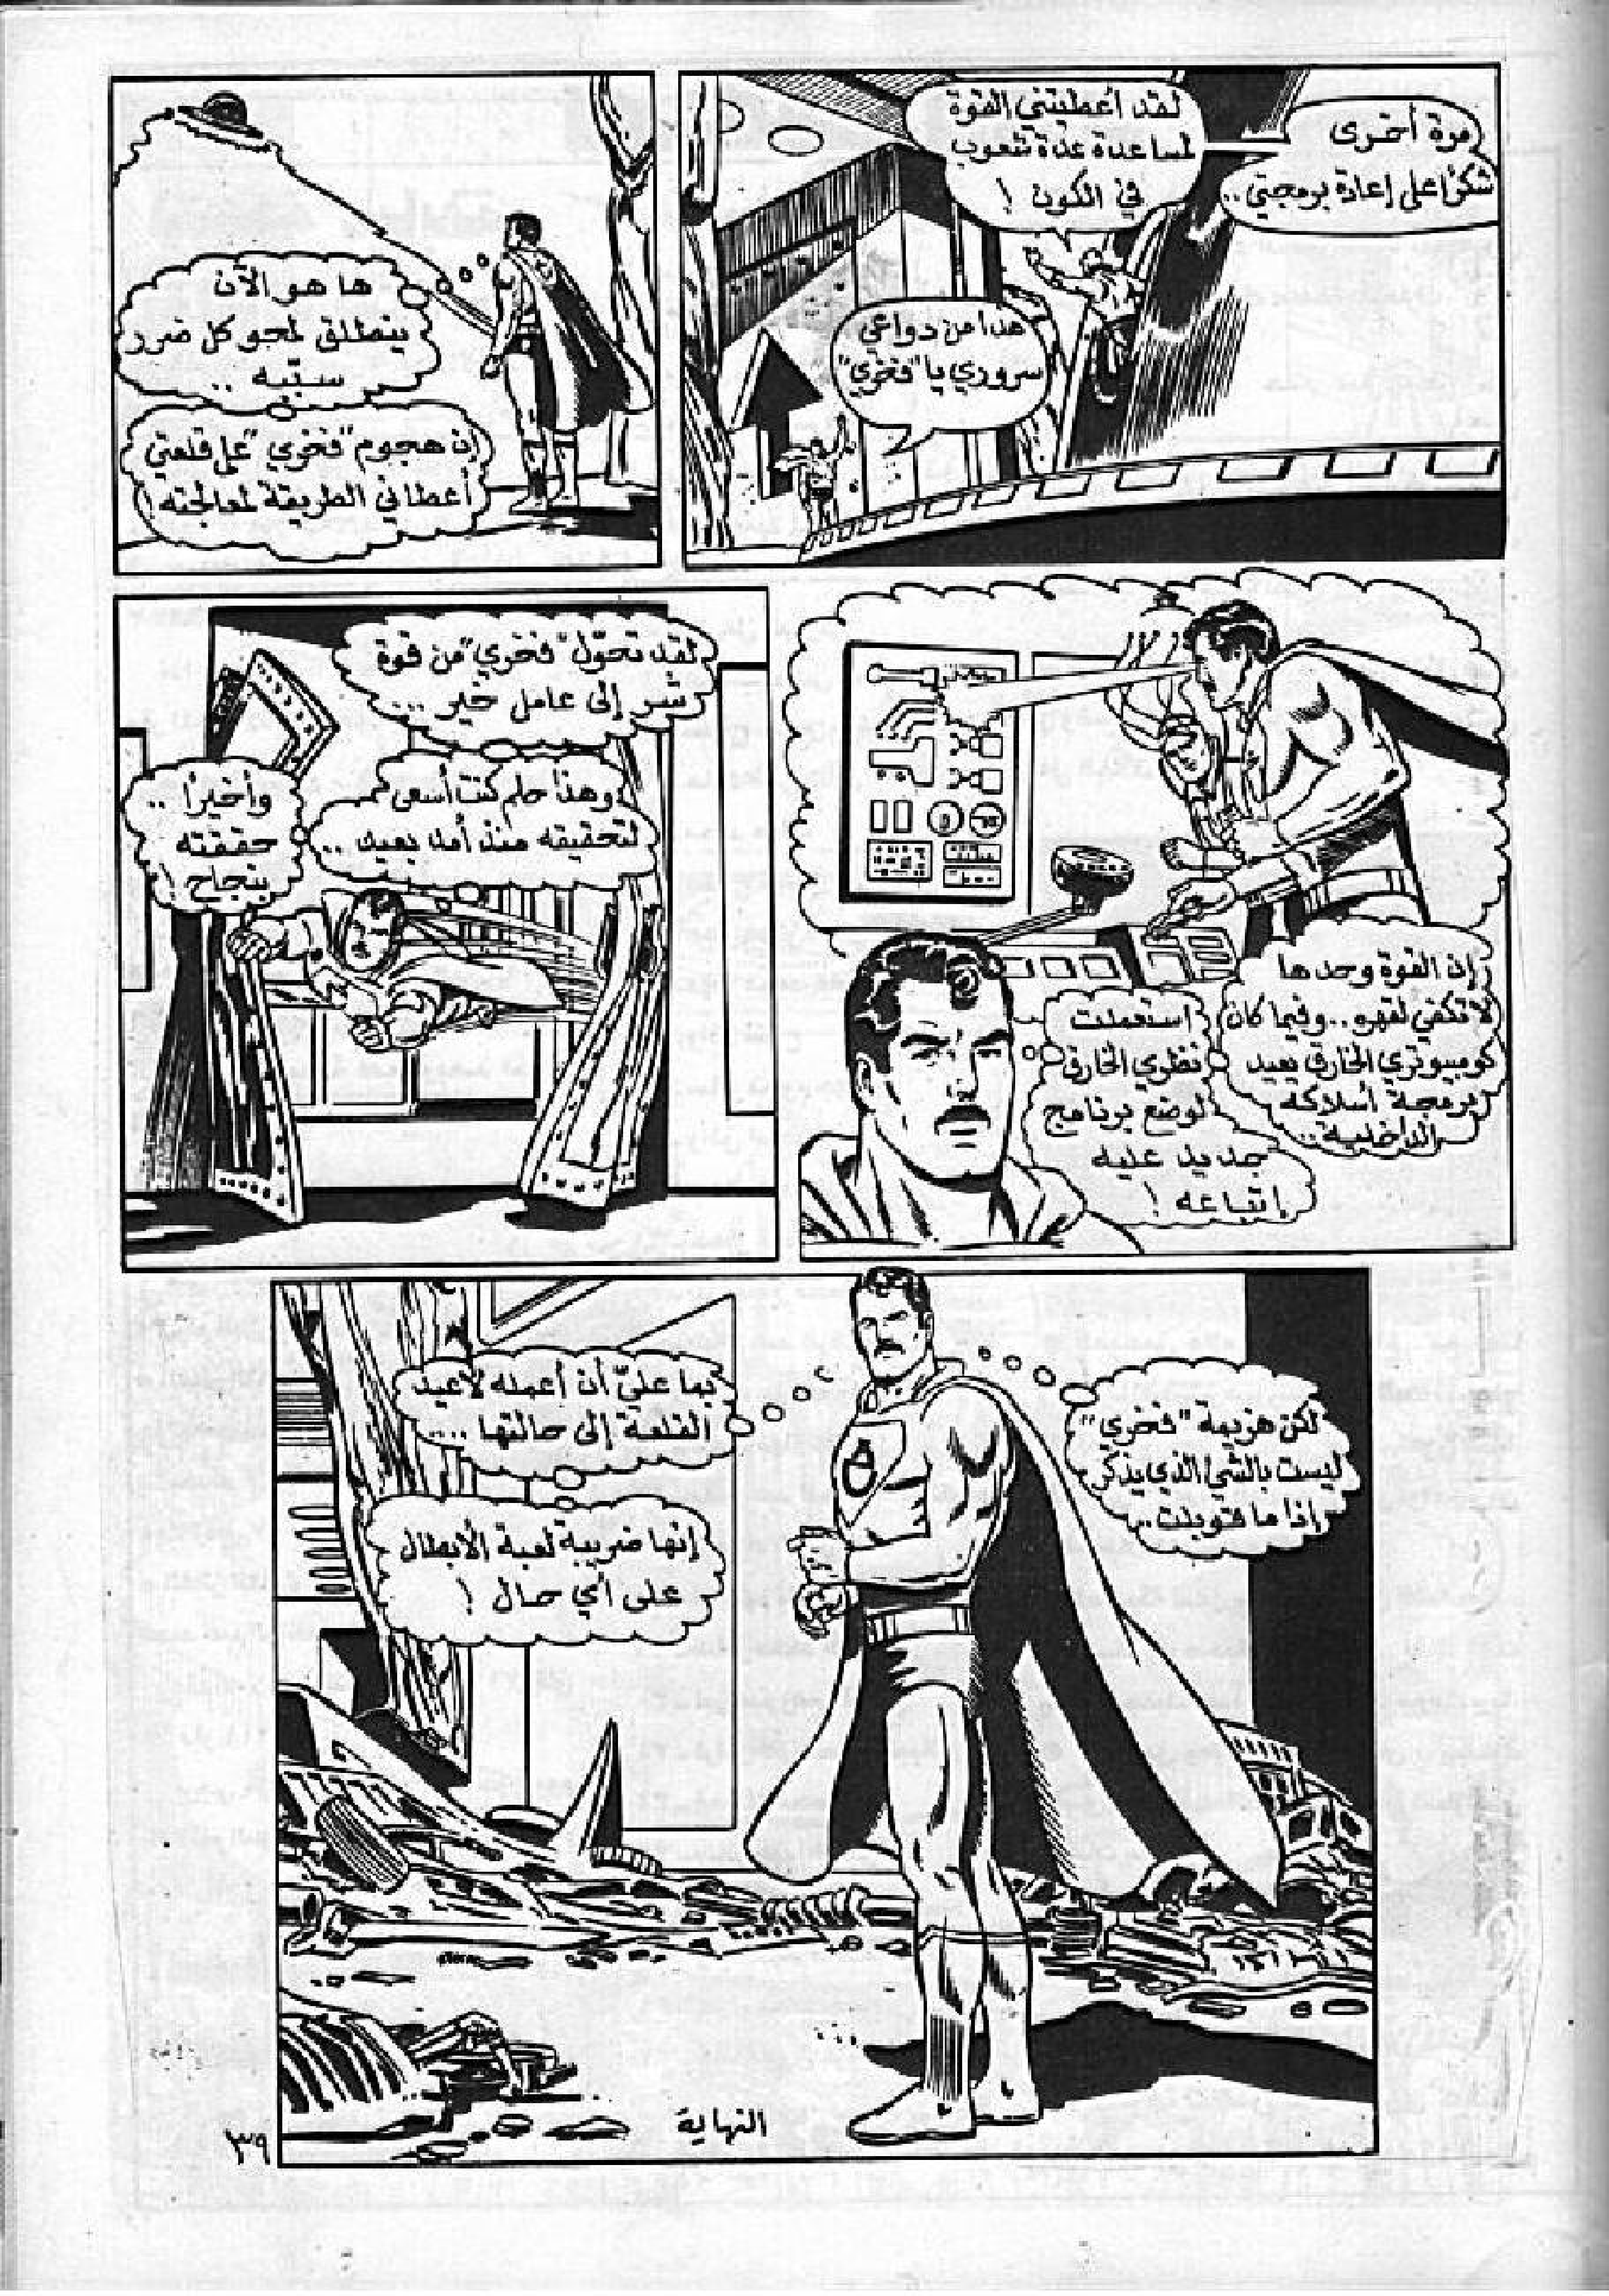 مرة أخرى
شكرًا على إعادة برمجتي..
لقد أعطيتني القوة
لمساعدة عدة شعوب
في الكون !
هذا من دواعي
سروري يا "فخري"
ها هو الآن
ينطلق لمحو كل ضرر
سبّبه ..
إن هجوم "فخري" على قلعتي
أعطاني الطريقة لمعالجته !
إن القوة وحدها
لا تكفي لقهره.. وفيما كان
كومبيوتري الخارق يعيد
برمجة أسلاكه
الداخلية..
استعملت
نظري الخارق
لوضع برنامج
جديد عليه
إتباعه !
لقد تحوّل "فخري" من قوة
شر إلى عامل خير ...
وهذا حلم كنت أسعى
لتحقيقه منذ أمد بعيد ..
وأخيرًا ..
حققته
بنجاح !
لكن هزيمة "فخري"
ليست بالشيئ الذي يذكر
إذا ما قوبلت..
بما عليّ أن أعمله لأعيد
القلعة إلى حالتها ....
إنها ضريبة لعبة الأبطال
على أي حال !
النهاية
٣٩